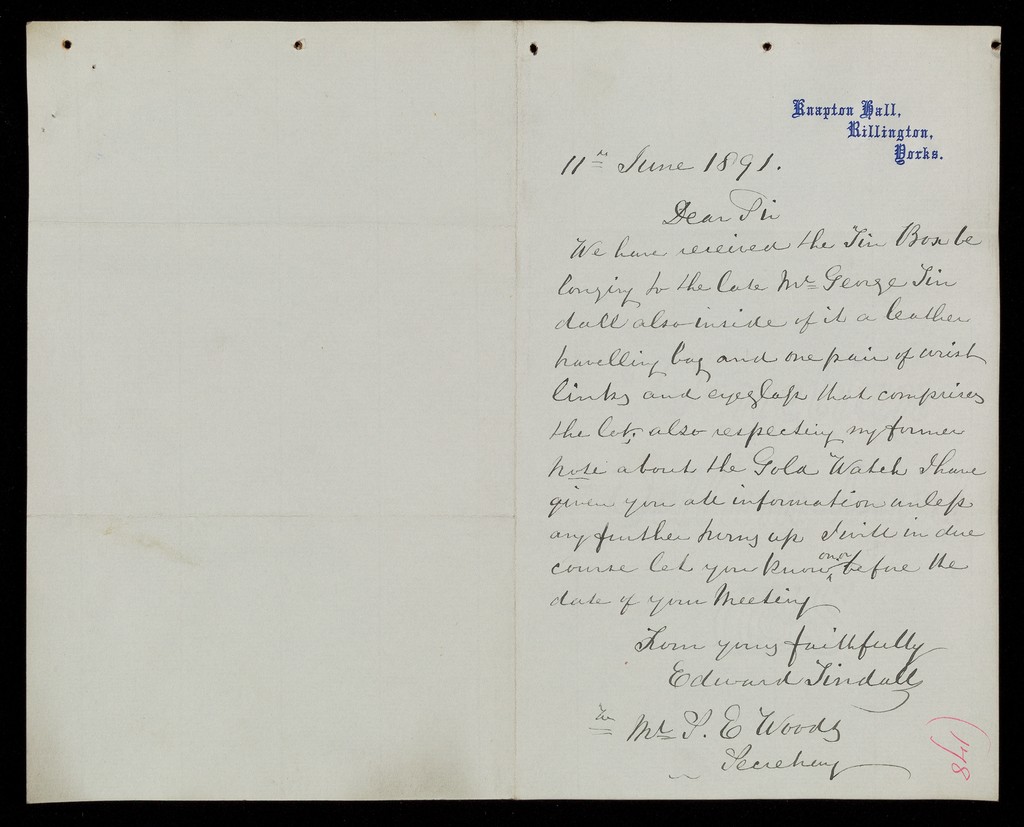 Knapton Hall,
Rillington,
Yorks.
11th June 1891.
Dear Sir
We have received the Tin Box be
longing to the late Mr George Tin
dall also inside of it a leather
travelling bag and one pair of wrist
links and eyeglass that comprises
the lot, also respecting my former
note about the Gold Watch I have
given you all information unless
any further turns up I will in due
course let you know on or before the
date of your Meeting
From yours faithfully
Edward Tindall
To Mr S. E Woods
Secretary
148